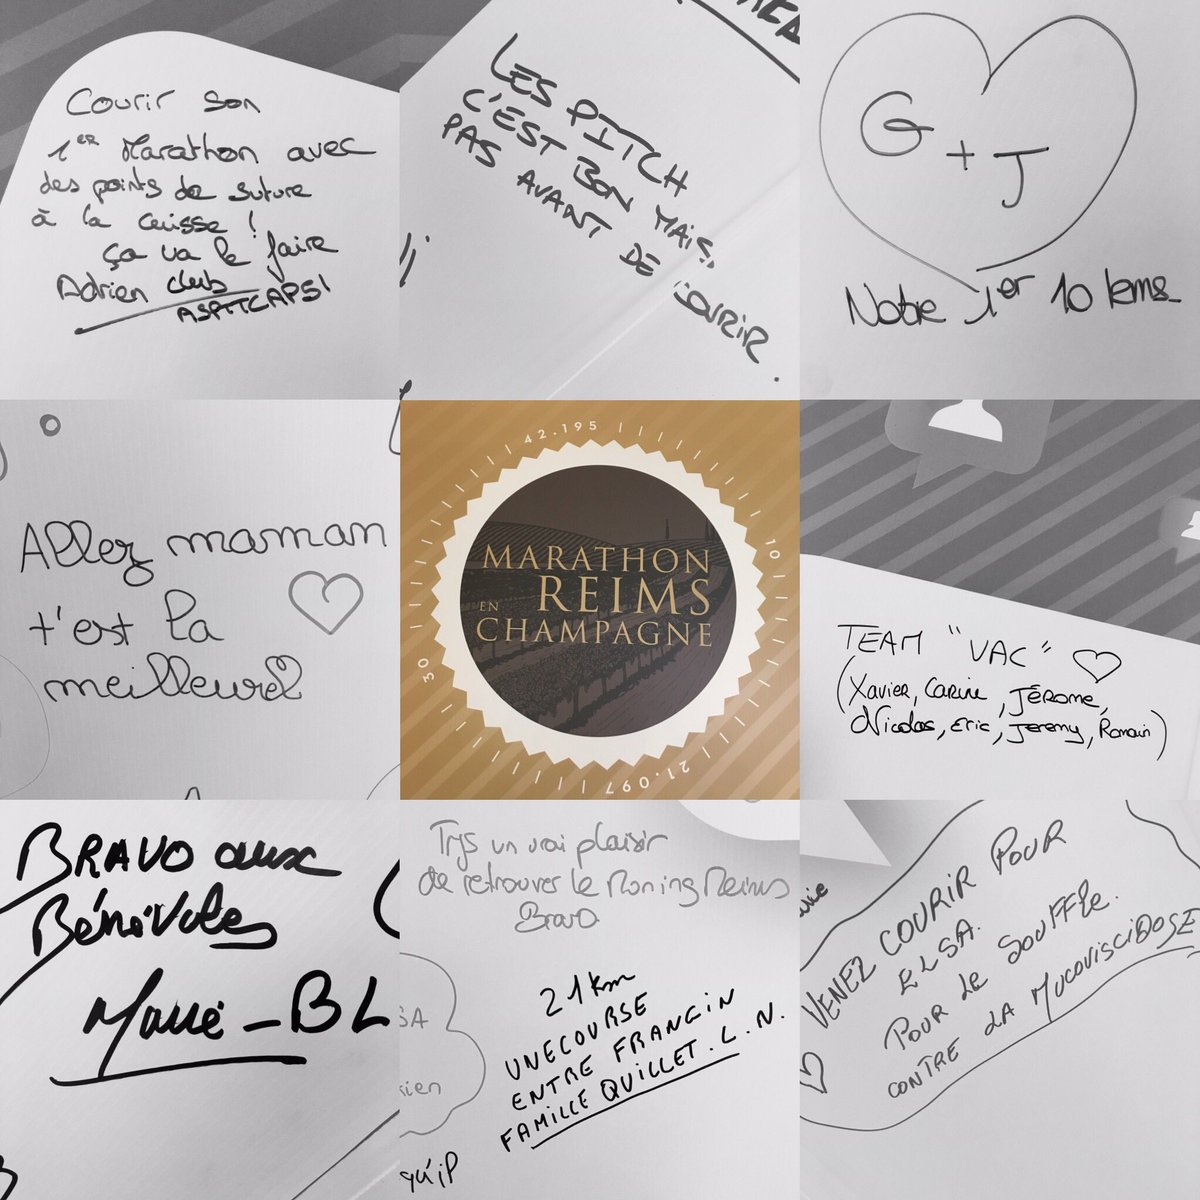 Courir son
1er Marathon avec
des points de suture
à la cuisse !
ça va le faire
Adrien club
ASPTTCAPSI
LES PITCH
C'EST BON MAIS,
PAS AVANT DE COURIR.
G + J
Notre 1er 10 kms
Allez maman
t'est la
meilleure
42.195
10
21.097
30
MARATHON
EN REIMS
CHAMPAGNE
TEAM "VAC"
(Xavier, Carine, JÉROME,
Nicolas, Eric, Jeremy, Romain)
BRAVO aux
Bénévoles
BL
Tjs un vrai plaisir
de retrouver le Roning Reims
Bravo
21km
UNE COURSE
ENTRE FRANGIN
FAMILLE QUILLET. L. N.
VENEZ COURIR POUR
ELSA.
POUR LE SOUFFLE.
CONTRE LA MUCOVISCIDOSE